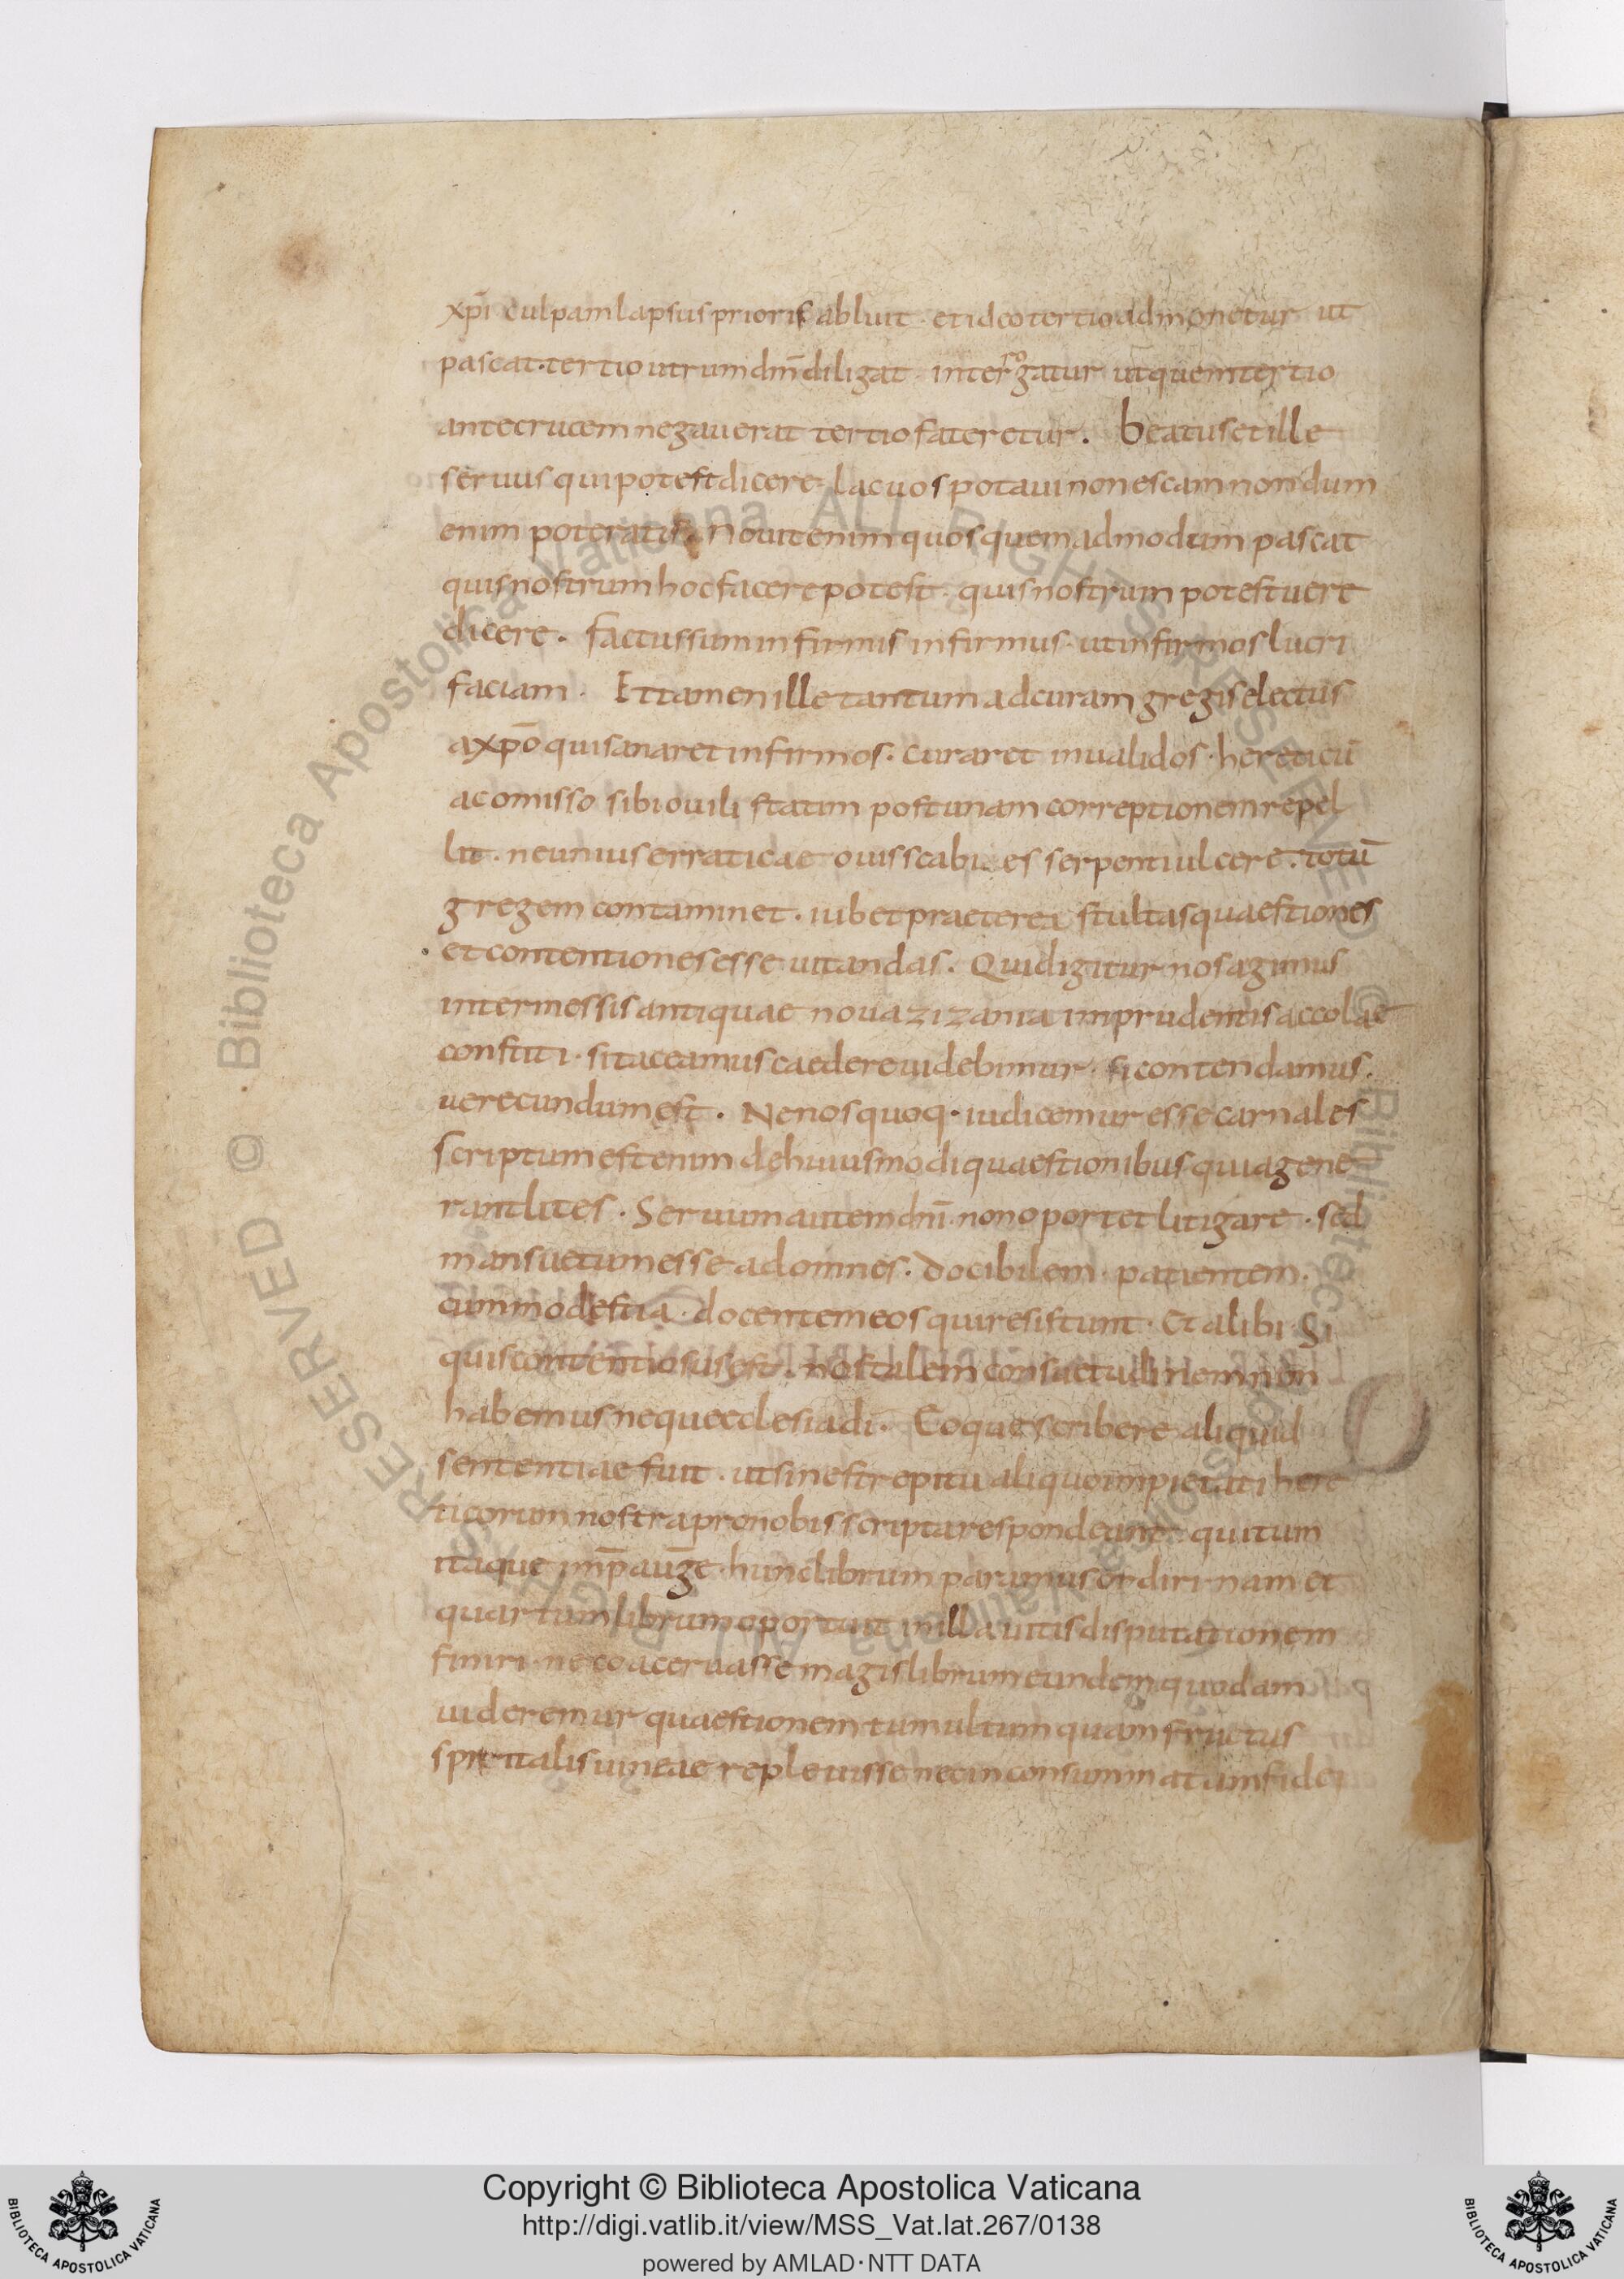 xp̄i culpam lapsus prioris abluit · et ideo tertio admonetur ut
pascat · tertio utrum dn̄m diligat · interrogatur ut quem tertio
ante crucem negauerat tertio fateretur . Beatus et ille
seruus qui potest dicere · lac uos potaui non escam nondum
enim poteratis . Nouit enim quos quemadmodum pascat
quis nostrum hoc facere potest · quis nostrum potest uere
dicere . factus sum infirmis infirmus · ut infirmos lucri
faciam . Et tamen ille tantum ad curam gregis electus
a xp̄o qui sanaret infirmos . curaret inualidos · hereticū
a comisso sibi ouili statim post unam correptionem repel
lit . ne unius erraticae ouis scabies serpenti ulcere . totū
gregem contaminet . iubet praeterea stultas quaestiones
et contentiones esse uitandas . Quid igitur nos agimus
inter messis antiquae noua zizania imprudentis accolae
constiti · si taceamus caedere uidebimur · si contendamus .
uerecundum est . Ne nos quoq · iudicemur esse carnales
scriptum est enim de huiusmodi quaestionibus quia gene
rant lites . Seruum autem dn̄i non oportet litigare . sed
mansuetum esse ad omnes . docibilem · patientem .
cum modestia · docentem eos qui resistunt · Et alibi · Si
quis contentiosus est . nos talem consuetudinem non
habemus neque ecclesia di · Eoque scribere aliquid
sententiae fuit . ut sine strepitu aliquo impietati here
ticorum nostra pro nobis scripta respondeant · quitum
itaque imp̄ aug̅e · hunc librum paramus ordiri nam et
quartum librum oportuit in illa uitis disputationem
finiri · ne coaceruasse magis librum eundem quodam
uideremur quaestionem tumultum quam fructus
spiritalis uineae repleuisse nec inconsummatum fidei